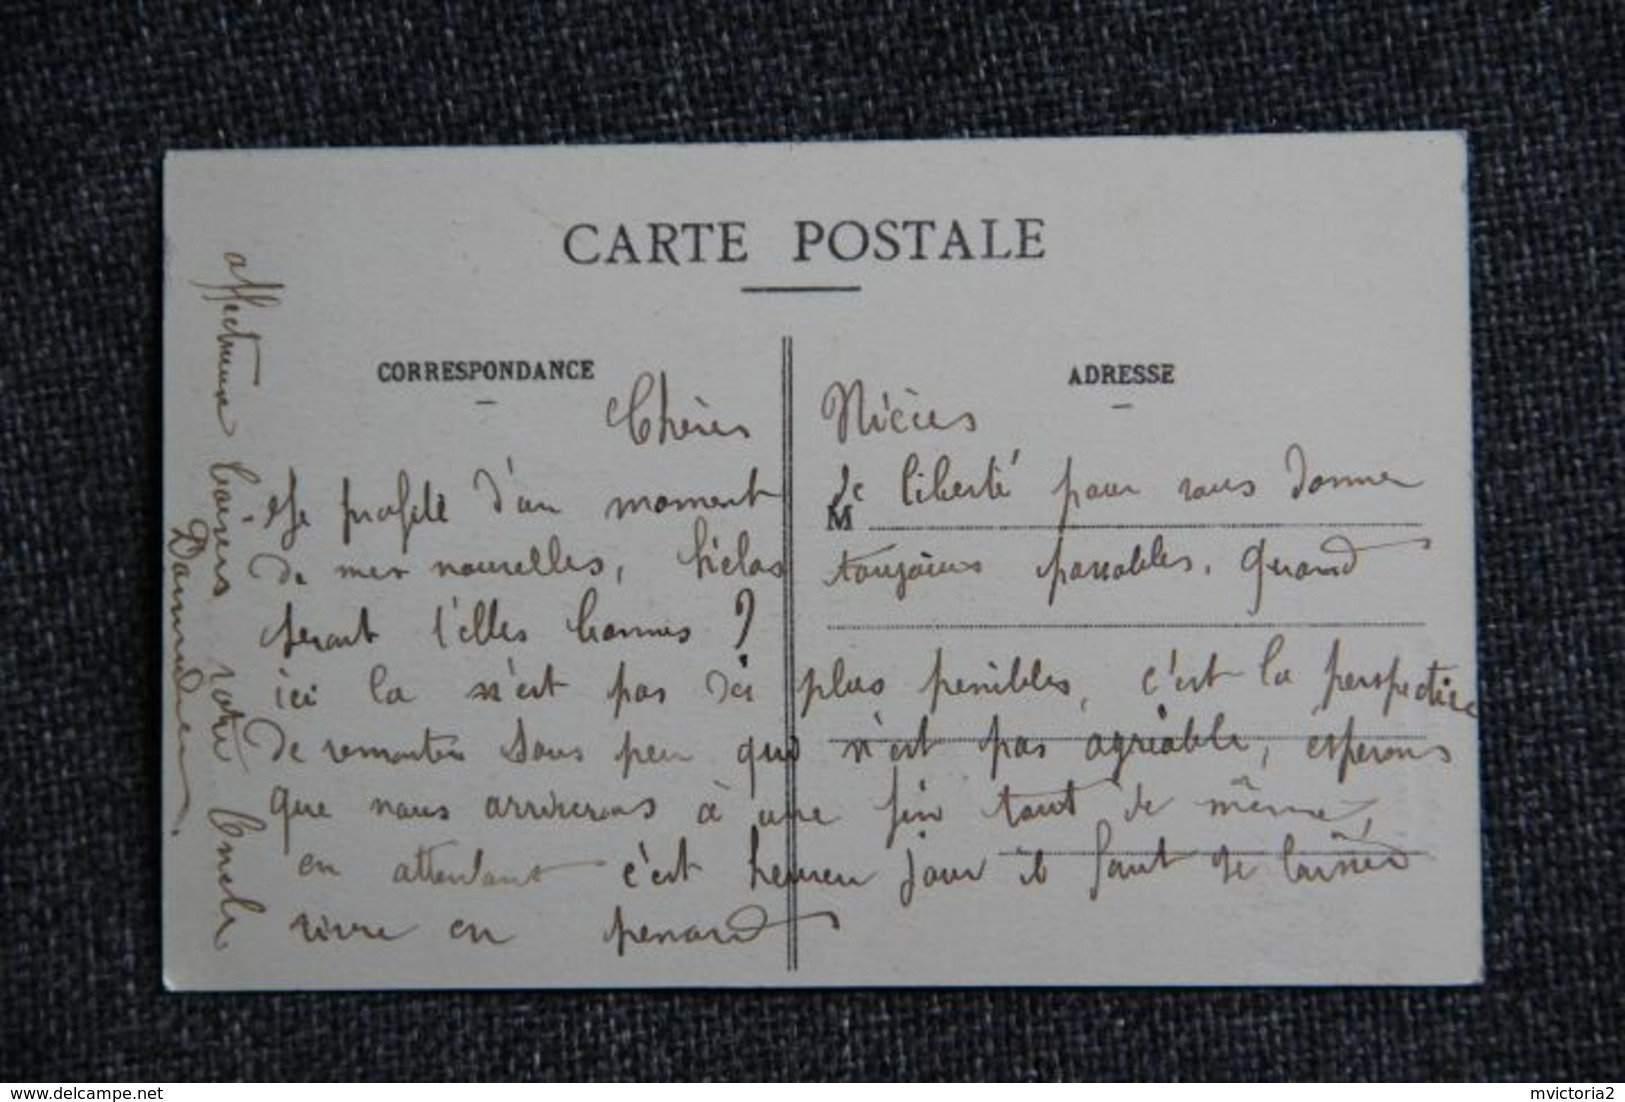 CARTE POSTALE
CORRESPONDANCE
ADRESSE
Chères Nièces
Je profite d'un moment de liberté pour vous donner
M
de mes nouvelles, hélas toujours passables. Quand
seront t'elles bonnes ?
ici la n'est pas des plus penibles, c'est la perspective
de remonter sous peu qui n'est pas agréable, esperons
que nous arriverons à une fin tout de même,
en attendant c'est heureu jour il faut se laisser
vivre en penard
affectueux baisers votre Oncle
delcampe.net
mvictoria2